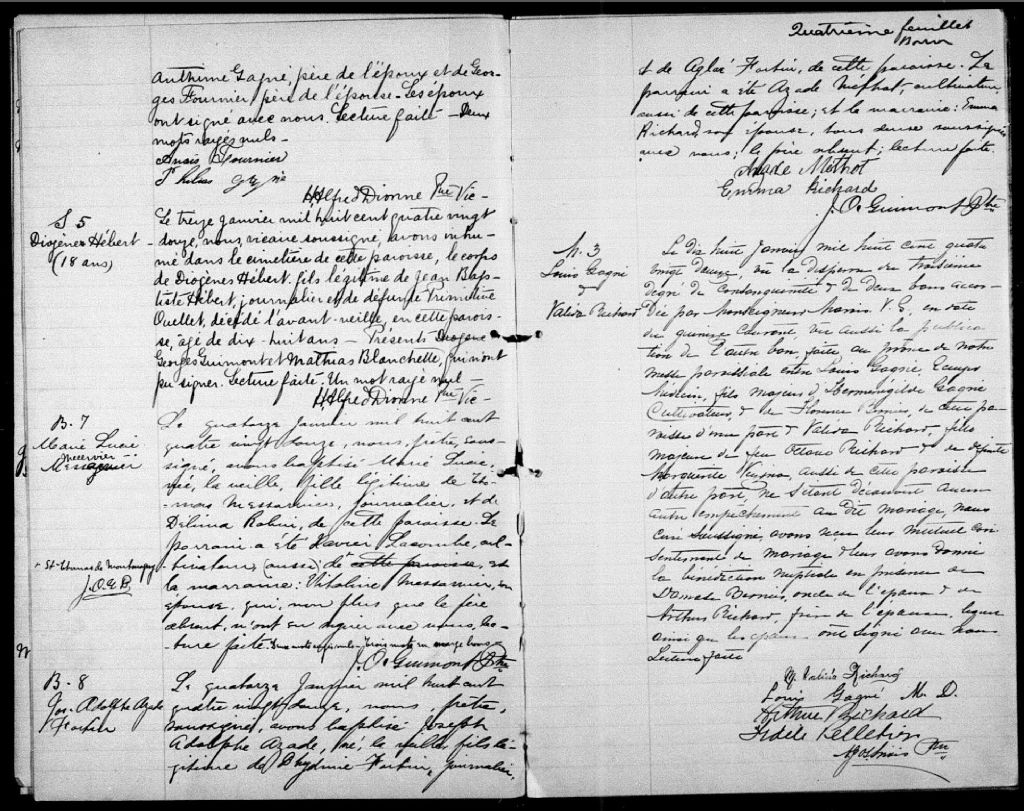 Anthime Gagné, père de l'époux et de Geor-
ges Fournier père de l'épouse - Les époux
ont signé avec nous. Lecture faite - Deux
mots rayés nuls -
Anaïs B Fournier
H Alfred Dionne Ptre Vic -
S 5
Diogènes Hébert
(18 ans)
Le treize janvier mil huit cent quatre vingt
douze, nous vicaire soussigné, avons inhu-
mé dans le cimetière de cette paroisse, le corps
de Diogènes Hébert, fils légitime de Jean Bap-
tiste Hébert, journalier et de défunte Primitive
Ouellet, décédé l'avant-veille, en cette parois-
se, agé de dix-huit ans - Présents
Georges Guimont et Mathias Blanchette, qui n'ont
pu signer. Lecture faite. Un mot rayé nul -
H Alfred Dionne Ptre Vic -
B. 7
Marie Lucie
Le quatorze Janvier mil huit cent
quatre vingt douze, nous, prêtre, sous-
signé, avons baptisé Marie Lucie,
née, la veille, fille légitime de Tho-
mas Messervier, journalier, et de
Délima Robin, de cette paroisse. Le
parrain a été Xavier Lacombe, cul-
tivateur, (aussi) de cette paroisse, et
St-Thomas de Montmagny
J.O.G.P.
la marraine: Vitaline Messervier, son
épouse, qui, non plus que le père
absent, n'ont su signer avec nous, lec-
ture faite.
J. O. Guimont Ptre
B - 8
Jos. Adolphe Azade
Fortin
Le quatorze Janvier mil huit cent
quatre vingt douze, nous, prêtre,
soussigné, avons baptisé Joseph
Adolphe Azade, né, la veille, fils lé-
gitime de Fortin, journalier,
Quatrième feuillet
et de Aglaé Fortin, de cette paroisse. Le
parrain a été Azade Méthot, cultivateur,
aussi de cette paroisse; et la marraine: Emma
Richard, son épouse, tous deux soussignés
avec nous; le père absent; lecture faite.
Azade Methot
Emma Richard
J. O. Guimont Ptre
M. 3
Louis Gagné
&
Valéda Richard
Le dix huit Janvier mil huit cent quatre
vingt douze, vu la dispense du troisième
degré de consanguinité & de deux bans accor-
dée par Monseigneur V. G, en date
du quinze courant, vu aussi la publica-
tion de l'autre ban, faite au prône de notre
messe paroissiale entre Louis Gagné,
fils majeur d'Herménégilde Gagné
Cultivateur, & de Bernier, de cette pa-
roisse d'une part & Valéda Richard, fille
majeure de feu Octave Richard & de défunte
Marguerite, aussi de cette paroisse
d'autre part, ne s'étant découvert aucun
autre empêchement au dit mariage, nous
Curé soussigné, avons reçu leur mutuel con-
sentement de mariage & leur avons donné
la bénédiction nuptiale en présence de
Damase Bernier, oncle de l'époux & de
Arthur Richard, frère de l'épouse, lequel
ainsi que les époux ont signé avec nous
Lecture faite
M. Valéda Richard
Louis Gagné M. D.
Arthur Richard
Fidèle Pelletier
Ptre